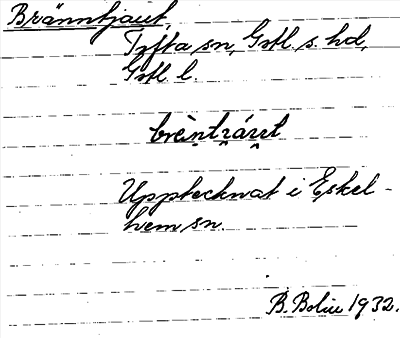 Brännhjaut,
Tofta sn, Gotl. s. hd,
Gotl. l.
Upptecknat i Eskel-
hem sn
B. Bolin 1932.